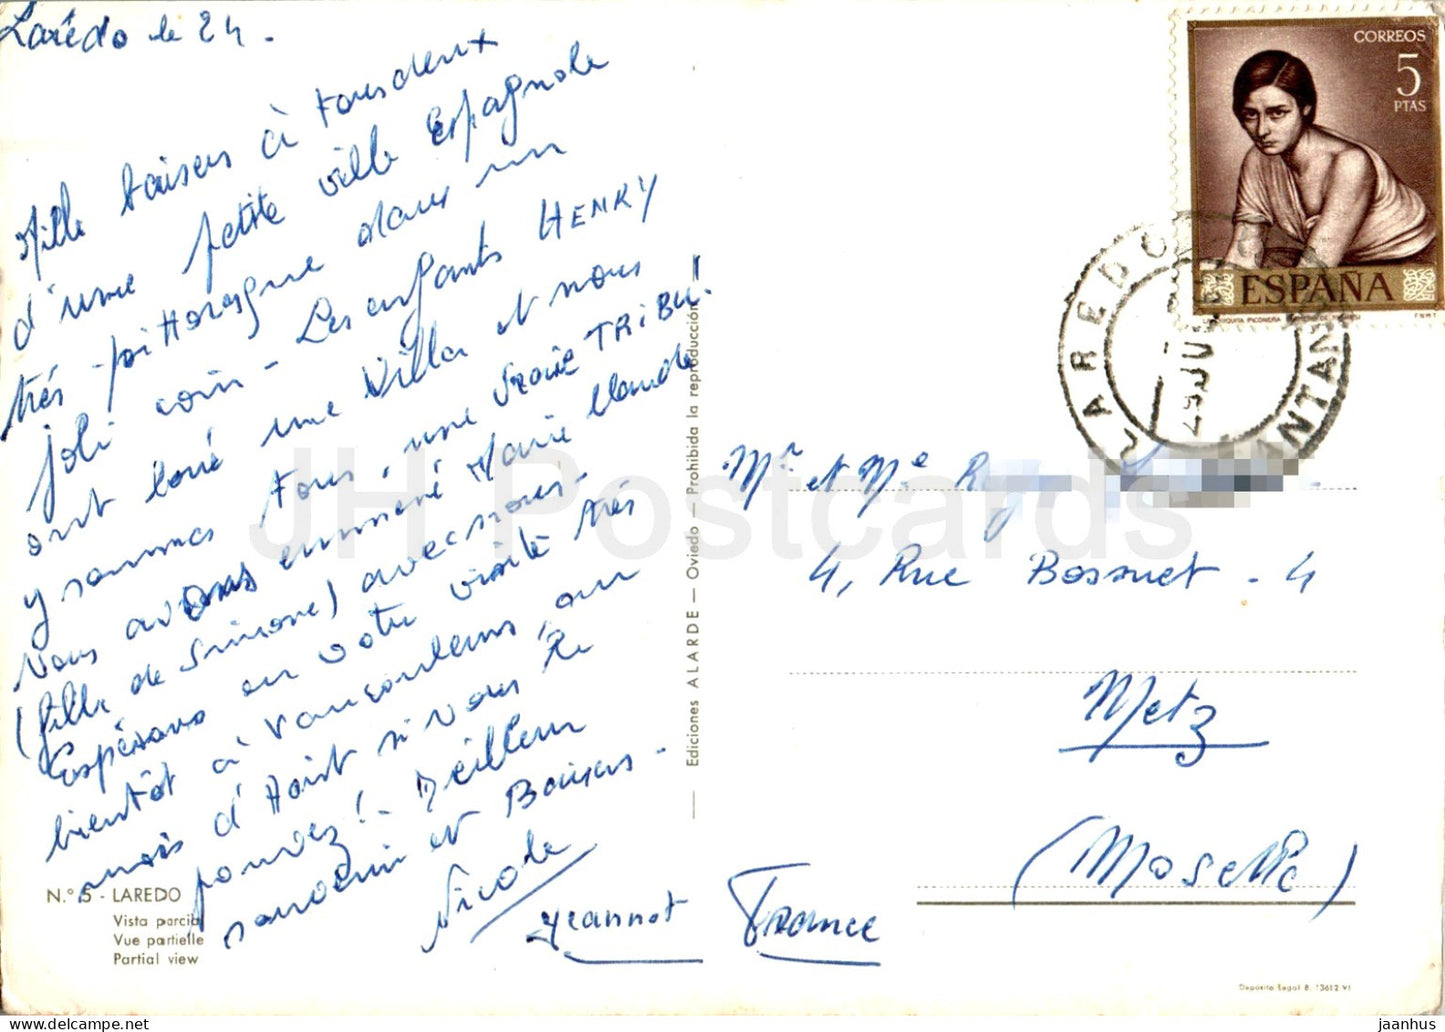 Larédo le 24.
Mille baisers à tous deux
d'une petite ville Espagnole
trés pittoresque dans un
joli coin - Les enfants HENRY
ont loué une Villa et nous
y sommes tous, une vraie TRIBU!
Nous avons emmené Marie Claude
(fille de Simone) avec nous -
Espérons en votre visite trés
bientôt à Vaucouleurs, au
mois d'Août si vous le
pouvez! - Meilleur
souvenir et Baisers -
Nicole
Jeannot
N.° 5 - LAREDO
Vista parcial
Vue partielle
Partial view
Ediciones ALARDE — Oviedo — Prohibida la reproducción
CORREOS
5
PTAS
ESPAÑA
F.N.M.T.
LAREDO
SANTAN
Mr et Me Roger
4, Rue Bossuet - 4
Metz
(Moselle)
France
Depósito Legal B. 13612-VI
JH Postcards
jaanhus